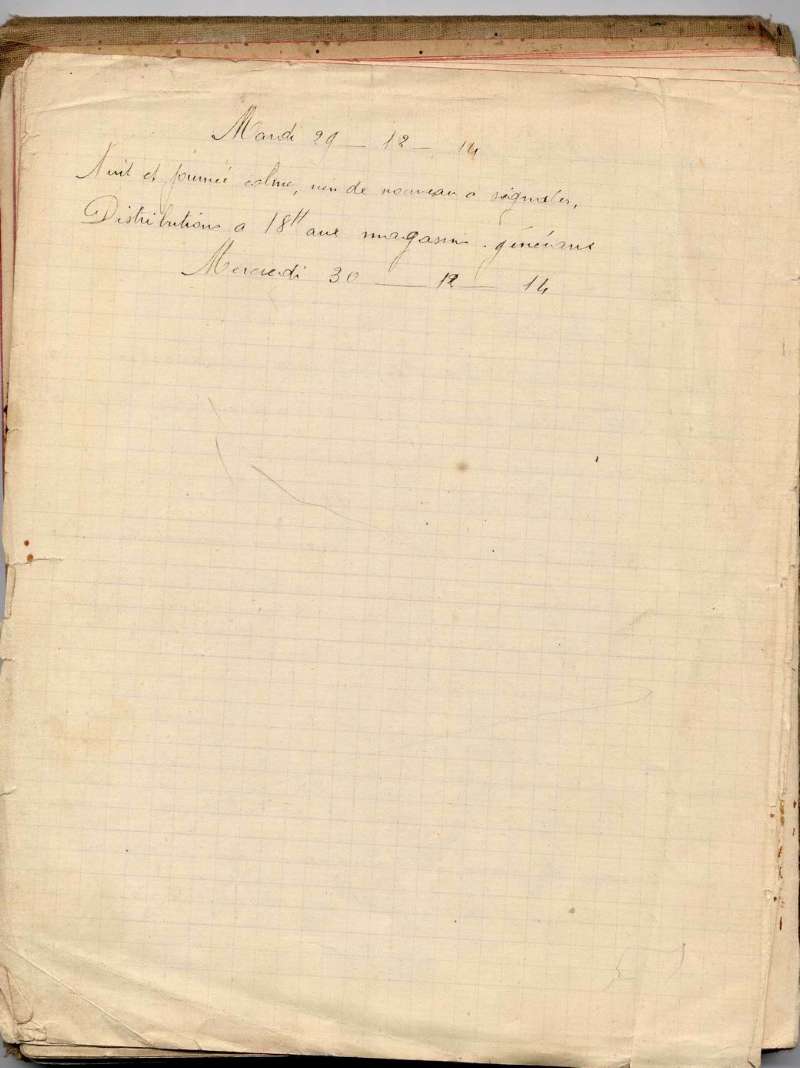 Mardi 29 — 12 — 14
Nuit et journée calme, rien de nouveau a signaler,
Distributions a 18H aux magasins généraux
Mercredi 30 — 12 — 14